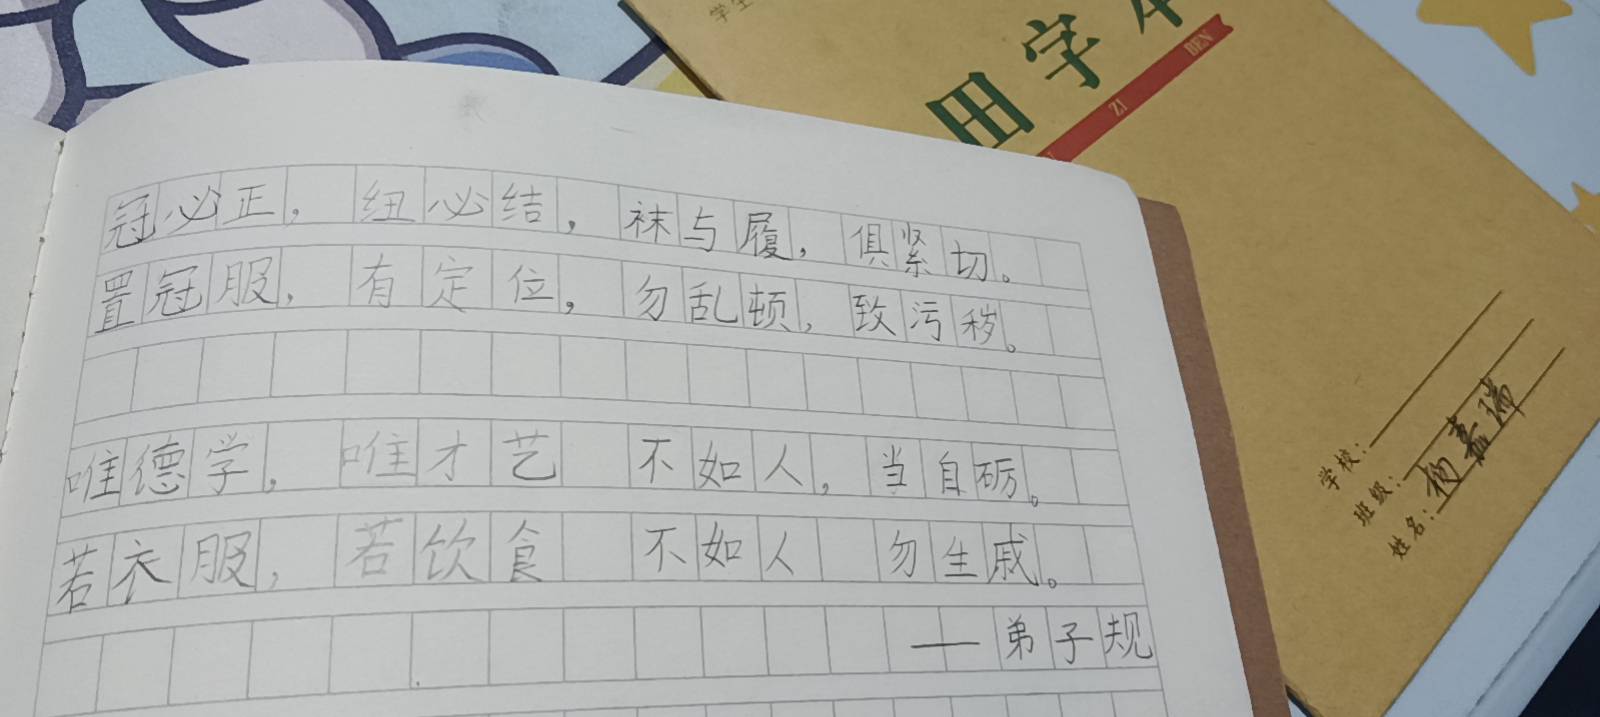 学生
田字本
ZI
BEN
冠必正， 纽必结， 袜与履， 俱紧切。
置冠服， 有定位， 勿乱顿， 致污秽。
唯德学， 唯才艺 不如人， 当自砺。
若衣服， 若饮食 不如人 勿生戚。
——弟子规
学校：
班级：
姓名：杨嘉瑞